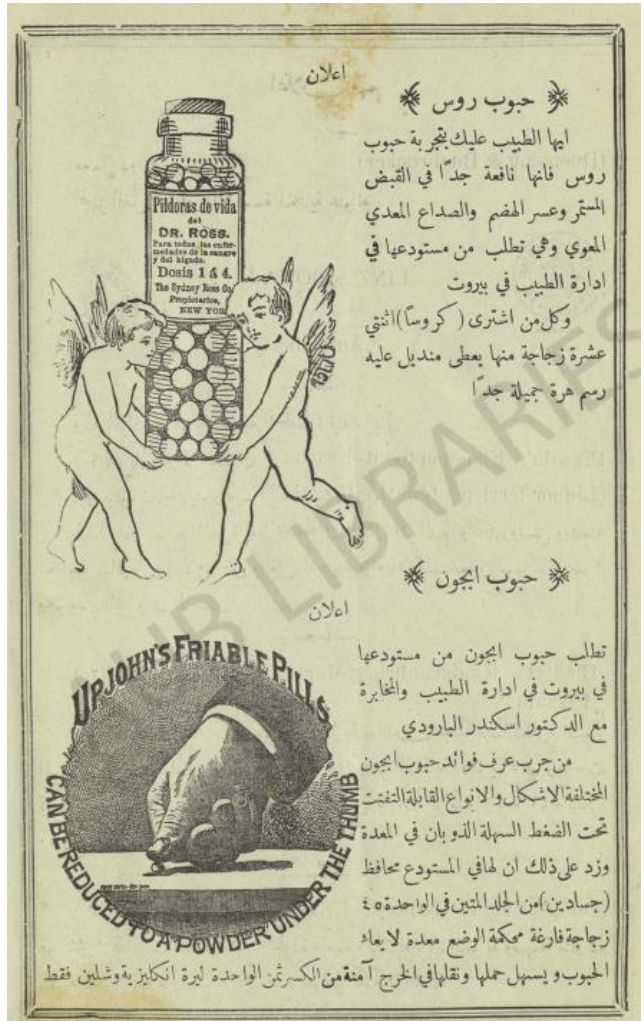 اعلان
حبوب روس
ايها الطبيب عليك بتجربة حبوب
روس فانها نافعة جدًا في القبض
المستمر وعسر الهضم والصداع المعدي
المعوي وهي تطلب من مستودعها في
ادارة الطبيب في بيروت
وكل من اشترى (كروسًا) اثنتي
عشرة زجاجة منها يعطى منديل عليه
رسم هرة جميلة جدًا
Píldoras de vida
del
DR. ROSS.
Para todas las enfer-
medades de la sangre
y del higado.
Dosis 1 á 4.
The Sydney Ross Co.
Propietarios,
NEW YOR
حبوب ابجون
اعلان
تطلب حبوب ابجون من مستودعها
في بيروت في ادارة الطبيب والمخابرة
مع الدكتور اسكندر البارودي
من جرب عرف فوائد حبوب ابجون
المختلفة الاشكال والانواع القابلة التفتت
تحت الضغط السهلة الذوبان في المعدة
وزد على ذلك ان لها في المستودع محافظ
(جسادين) من الجلد المتين في الواحدة ٤٥
زجاجة فارغة محكمة الوضع معدة لايعاء
الحبوب ويسهل حملها ونقلها في الخرج آمنة من الكسر ثمن الواحدة ليرة انكليزية وشلين فقط
UPJOHN'S FRIABLE PILLS
CAN BE REDUCED TO A POWDER UNDER THE THUMB
AUB LIBRARIES